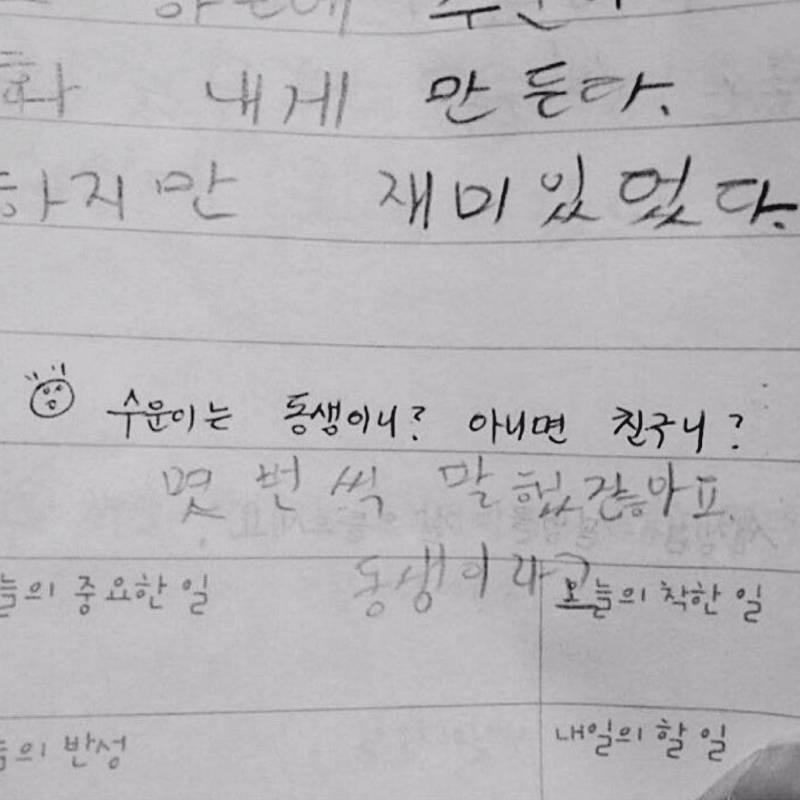 화 내게 만든다.
하지만 재미있었다.
수운이는 동생이니? 아니면 친구니?
몇 번 씩 말 했잖아요
동생이라고
늘의 중요한 일
오늘의 착한 일
늘의 반성
내일의 할 일